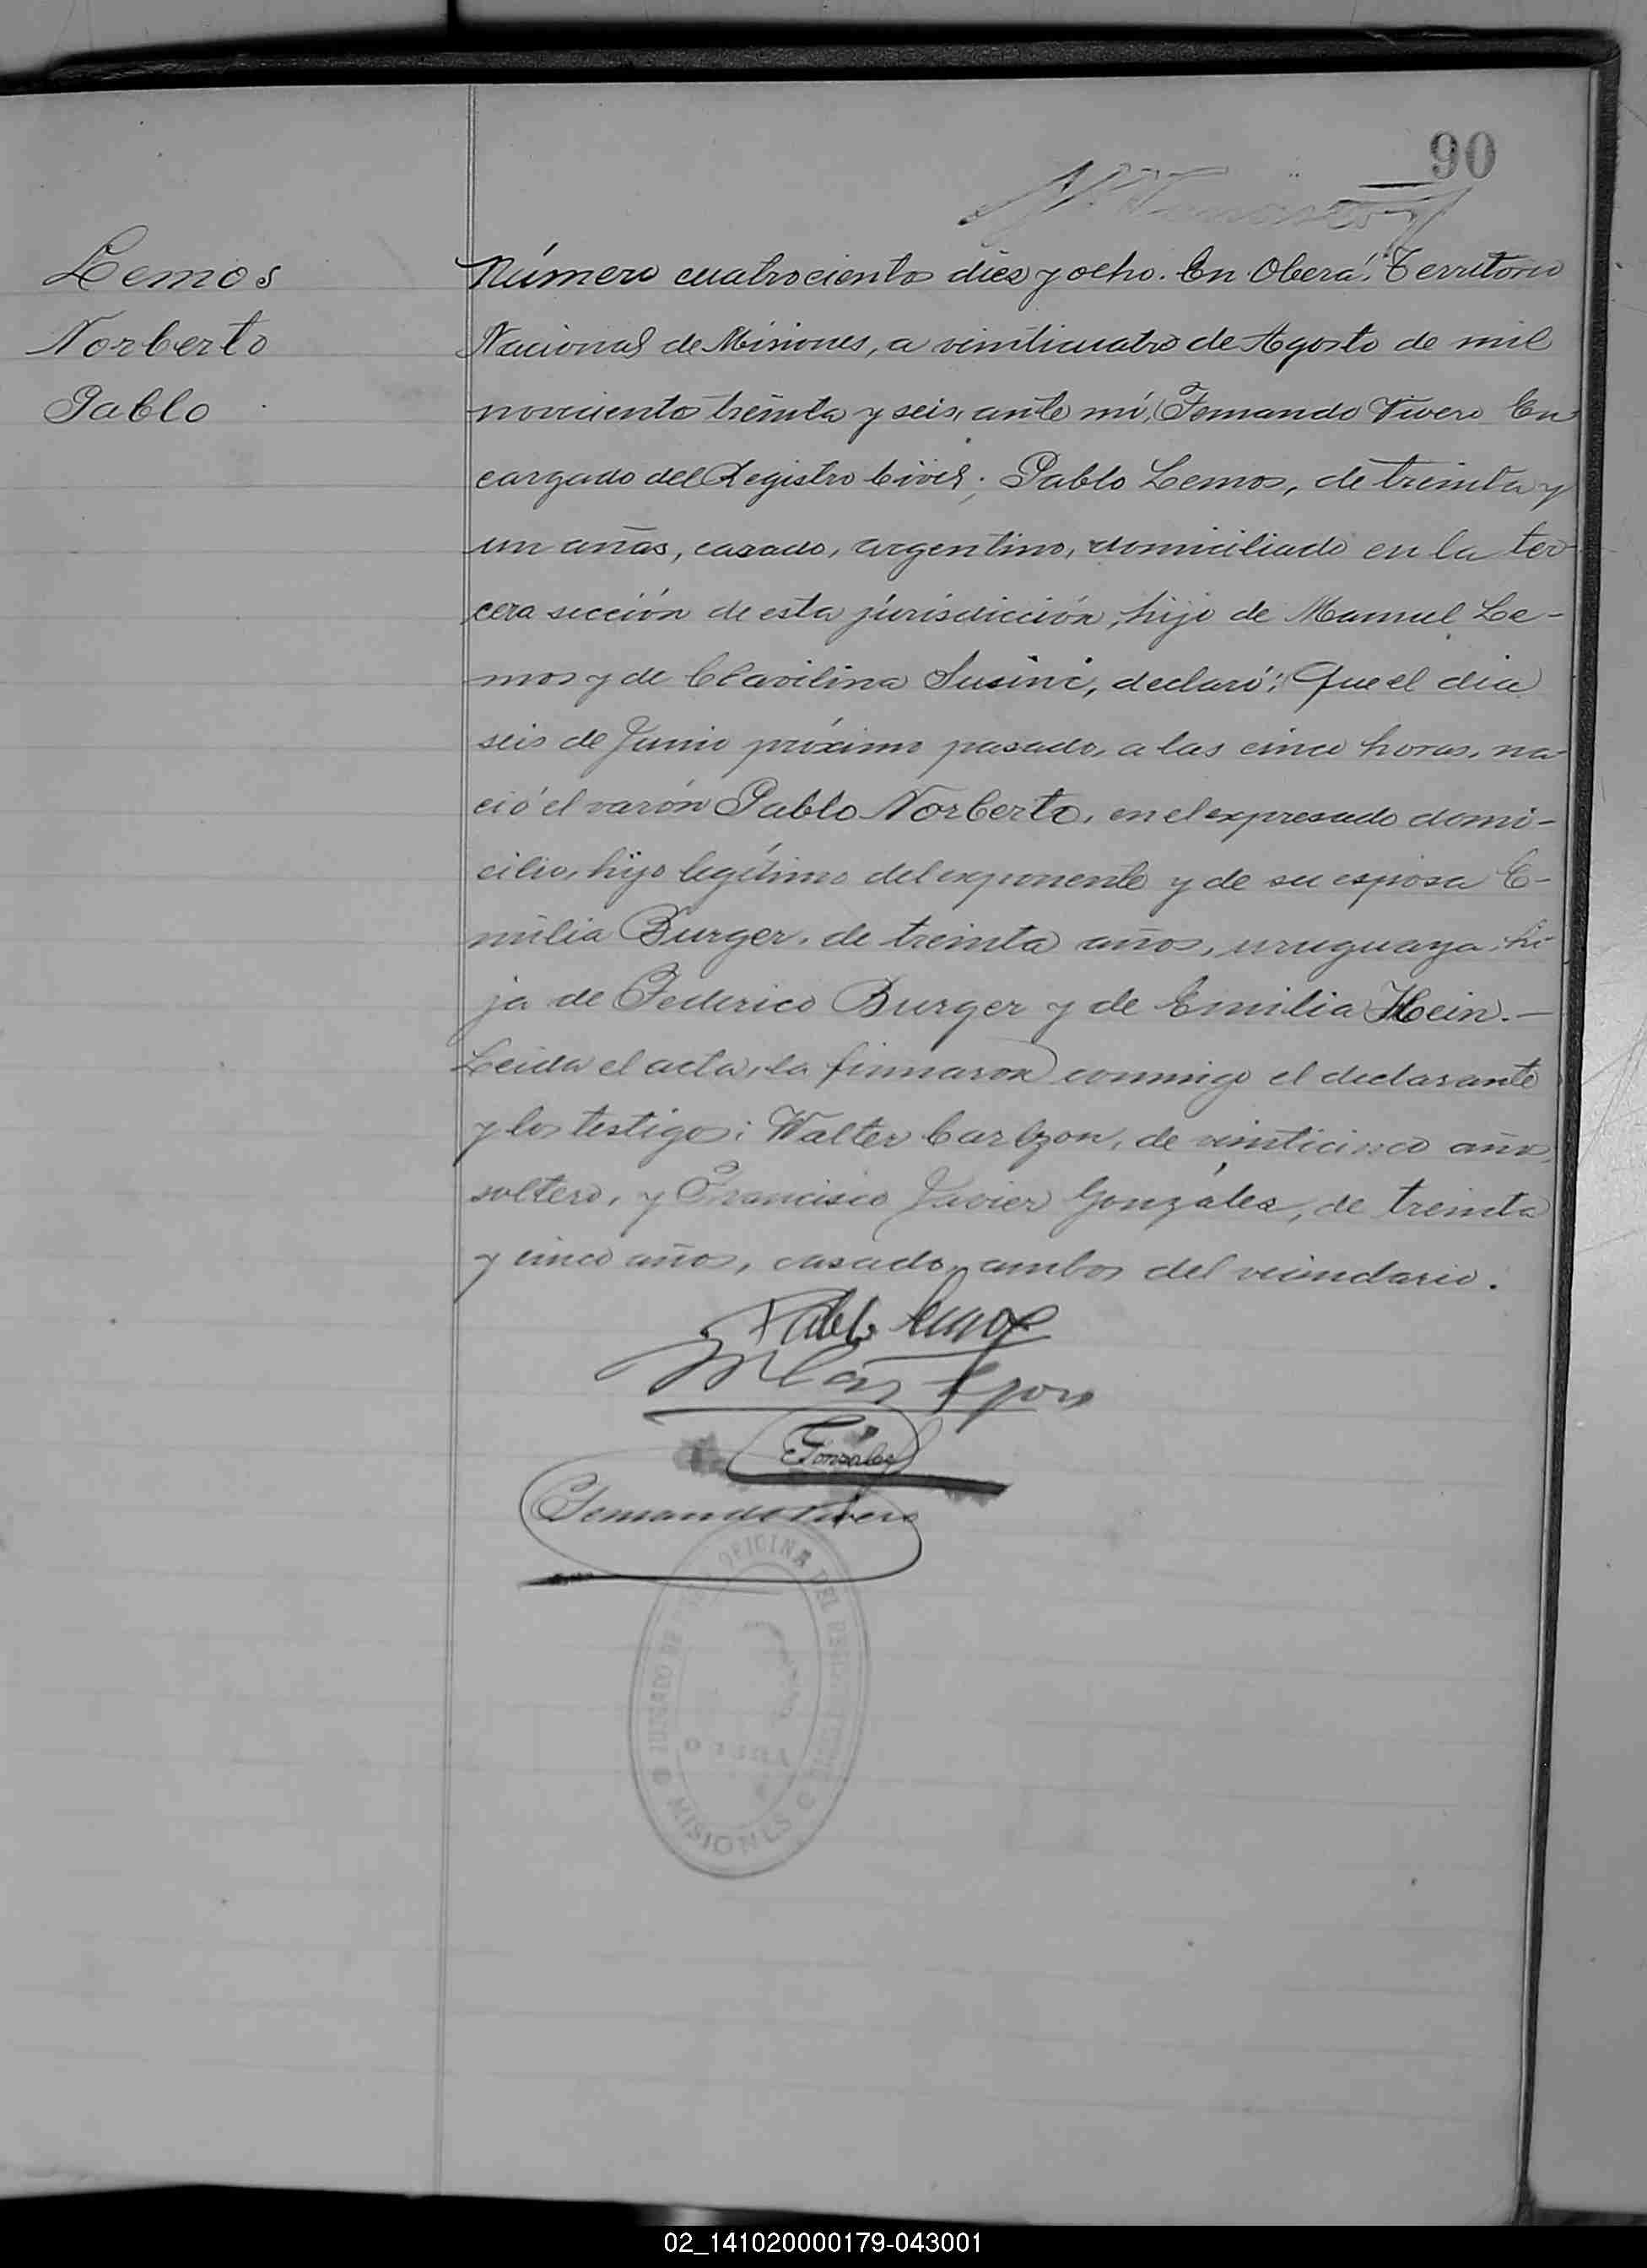 90
Lemos
Norberto
Pablo
Número cuatrocientos diez y ocho. En Oberá, Territorio
Nacional de Misiones, a veinticuatro de Agosto de mil
novecientos treinta y seis, ante mí, Fernando Vivero En
cargado del Registro Civil; Pablo Lemos, de treinta y
un años, casado, argentino, domiciliado en la ter
cera sección de esta jurisdicción, hijo de Manuel Le-
mos y de Clavilina Susini, declaró: Que el dia
seis de Junio próximo pasado, a las cinco horas, na
ció el varón Pablo Norberto, en el expresado domi-
cilio, hijo legítimo del exponente y de su esposa E-
milia Burger, de treinta años, uruguaya, hi-
ja de Federico Burger y de Emilia Hein.—
Leida el acta, la firmaron conmigo el declarante
y los testigos: Walter Carlzon, de veinticinco años,
soltero, y Francisco Javier Gonzáles, de treinta
y cinco años, casado, ambos del vecindario.
Pablo Lemos
Gonzales
Fernando Vivero
OFICINA DEL
JUZGADO DE
OBERA
MISIONES
02_141020000179-043001